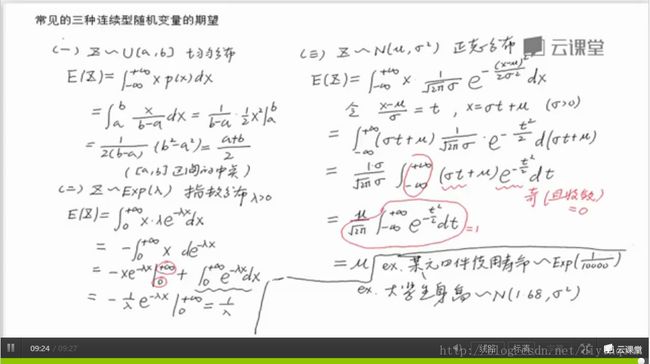 常见的三种连续型随机变量的期望
(一) X ~ U[a,b] 均匀分布
E(X) = ∫_{-∞}^{+∞} x p(x) dx
= ∫_a^b x/(b-a) dx = 1/(b-a) · 1/2 x² |_a^b
= 1/(2(b-a)) (b²-a²) = (a+b)/2
([a,b] 区间的中点)
(二) X ~ Exp(λ) 指数分布 λ>0
E(X) = ∫_0^{+∞} x · λe^{-λx} dx
= -∫_0^{+∞} x de^{-λx}
= -xe^{-λx} |_0^{+∞} + ∫_0^{+∞} e^{-λx} dx
= -1/λ e^{-λx} |_0^{+∞} = 1/λ
(三) X ~ N(μ, σ²) 正态分布
云课堂
E(X) = ∫_{-∞}^{+∞} x · 1/(√2π σ) e^{-(x-μ)²/2σ²} dx
令 (x-μ)/σ = t , x = σt+μ (σ>0)
= ∫_{-∞}^{+∞} (σt+μ) 1/(√2π σ) · e^{-t²/2} d(σt+μ)
= 1·σ/(√2π σ) ∫_{-∞}^{+∞} (σt+μ) e^{-t²/2} dt
奇(且收敛)
=0
= μ/√2π ∫_{-∞}^{+∞} e^{-t²/2} dt =1
= μ
ex. 某元件使用寿命 ~ Exp(1/10000)
ex. 大学生身高 ~ N(1.68, σ²)
09:24 / 09:27
标高
云课堂